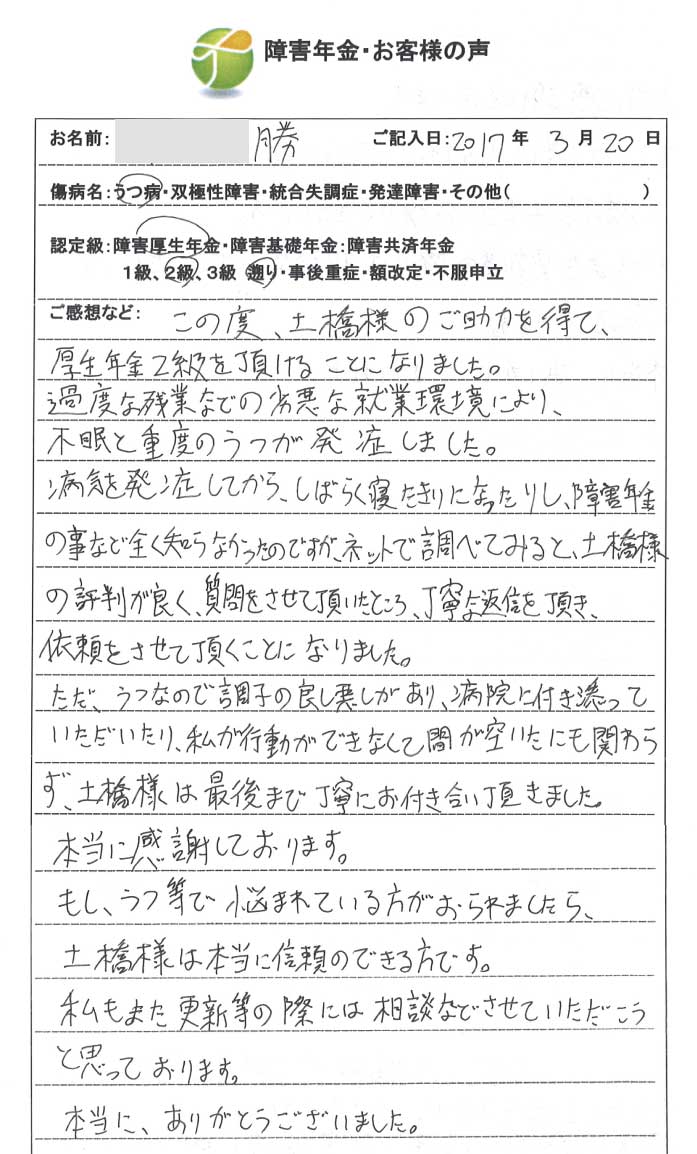 障害年金・お客様の声
お名前: 勝 ご記入日:2017年 3月20日
傷病名:うつ病・双極性障害・統合失調症・発達障害・その他( )
認定級:障害厚生年金・障害基礎年金:障害共済年金
1級、2級、3級 遡り・事後重症・額改定・不服申立
ご感想など: この度、土橋様のご助力を得て、
厚生年金2級を頂けることになりました。
過度な残業などの劣悪な就業環境により、
不眠と重度のうつが発症しました。
病気を発症してから、しばらく寝たきりになったりし、障害年金
の事など全く知らなかったのですが、ネットで調べてみると、土橋様
の評判が良く、質問をさせて頂いたところ、丁寧な返信を頂き、
依頼をさせて頂くことになりました。
ただ、うつなので調子の良し悪しがあり、病院に付き添って
いただいたり、私が行動ができなくて間が空いたにも関わら
ず、土橋様は最後まで丁寧にお付き合い頂きました。
本当に感謝しております。
もし、うつ等で悩まれている方がおられましたら、
土橋様は本当に信頼のできる方です。
私もまた更新等の際には相談などさせていただこう
と思っております。
本当に、ありがとうございました。